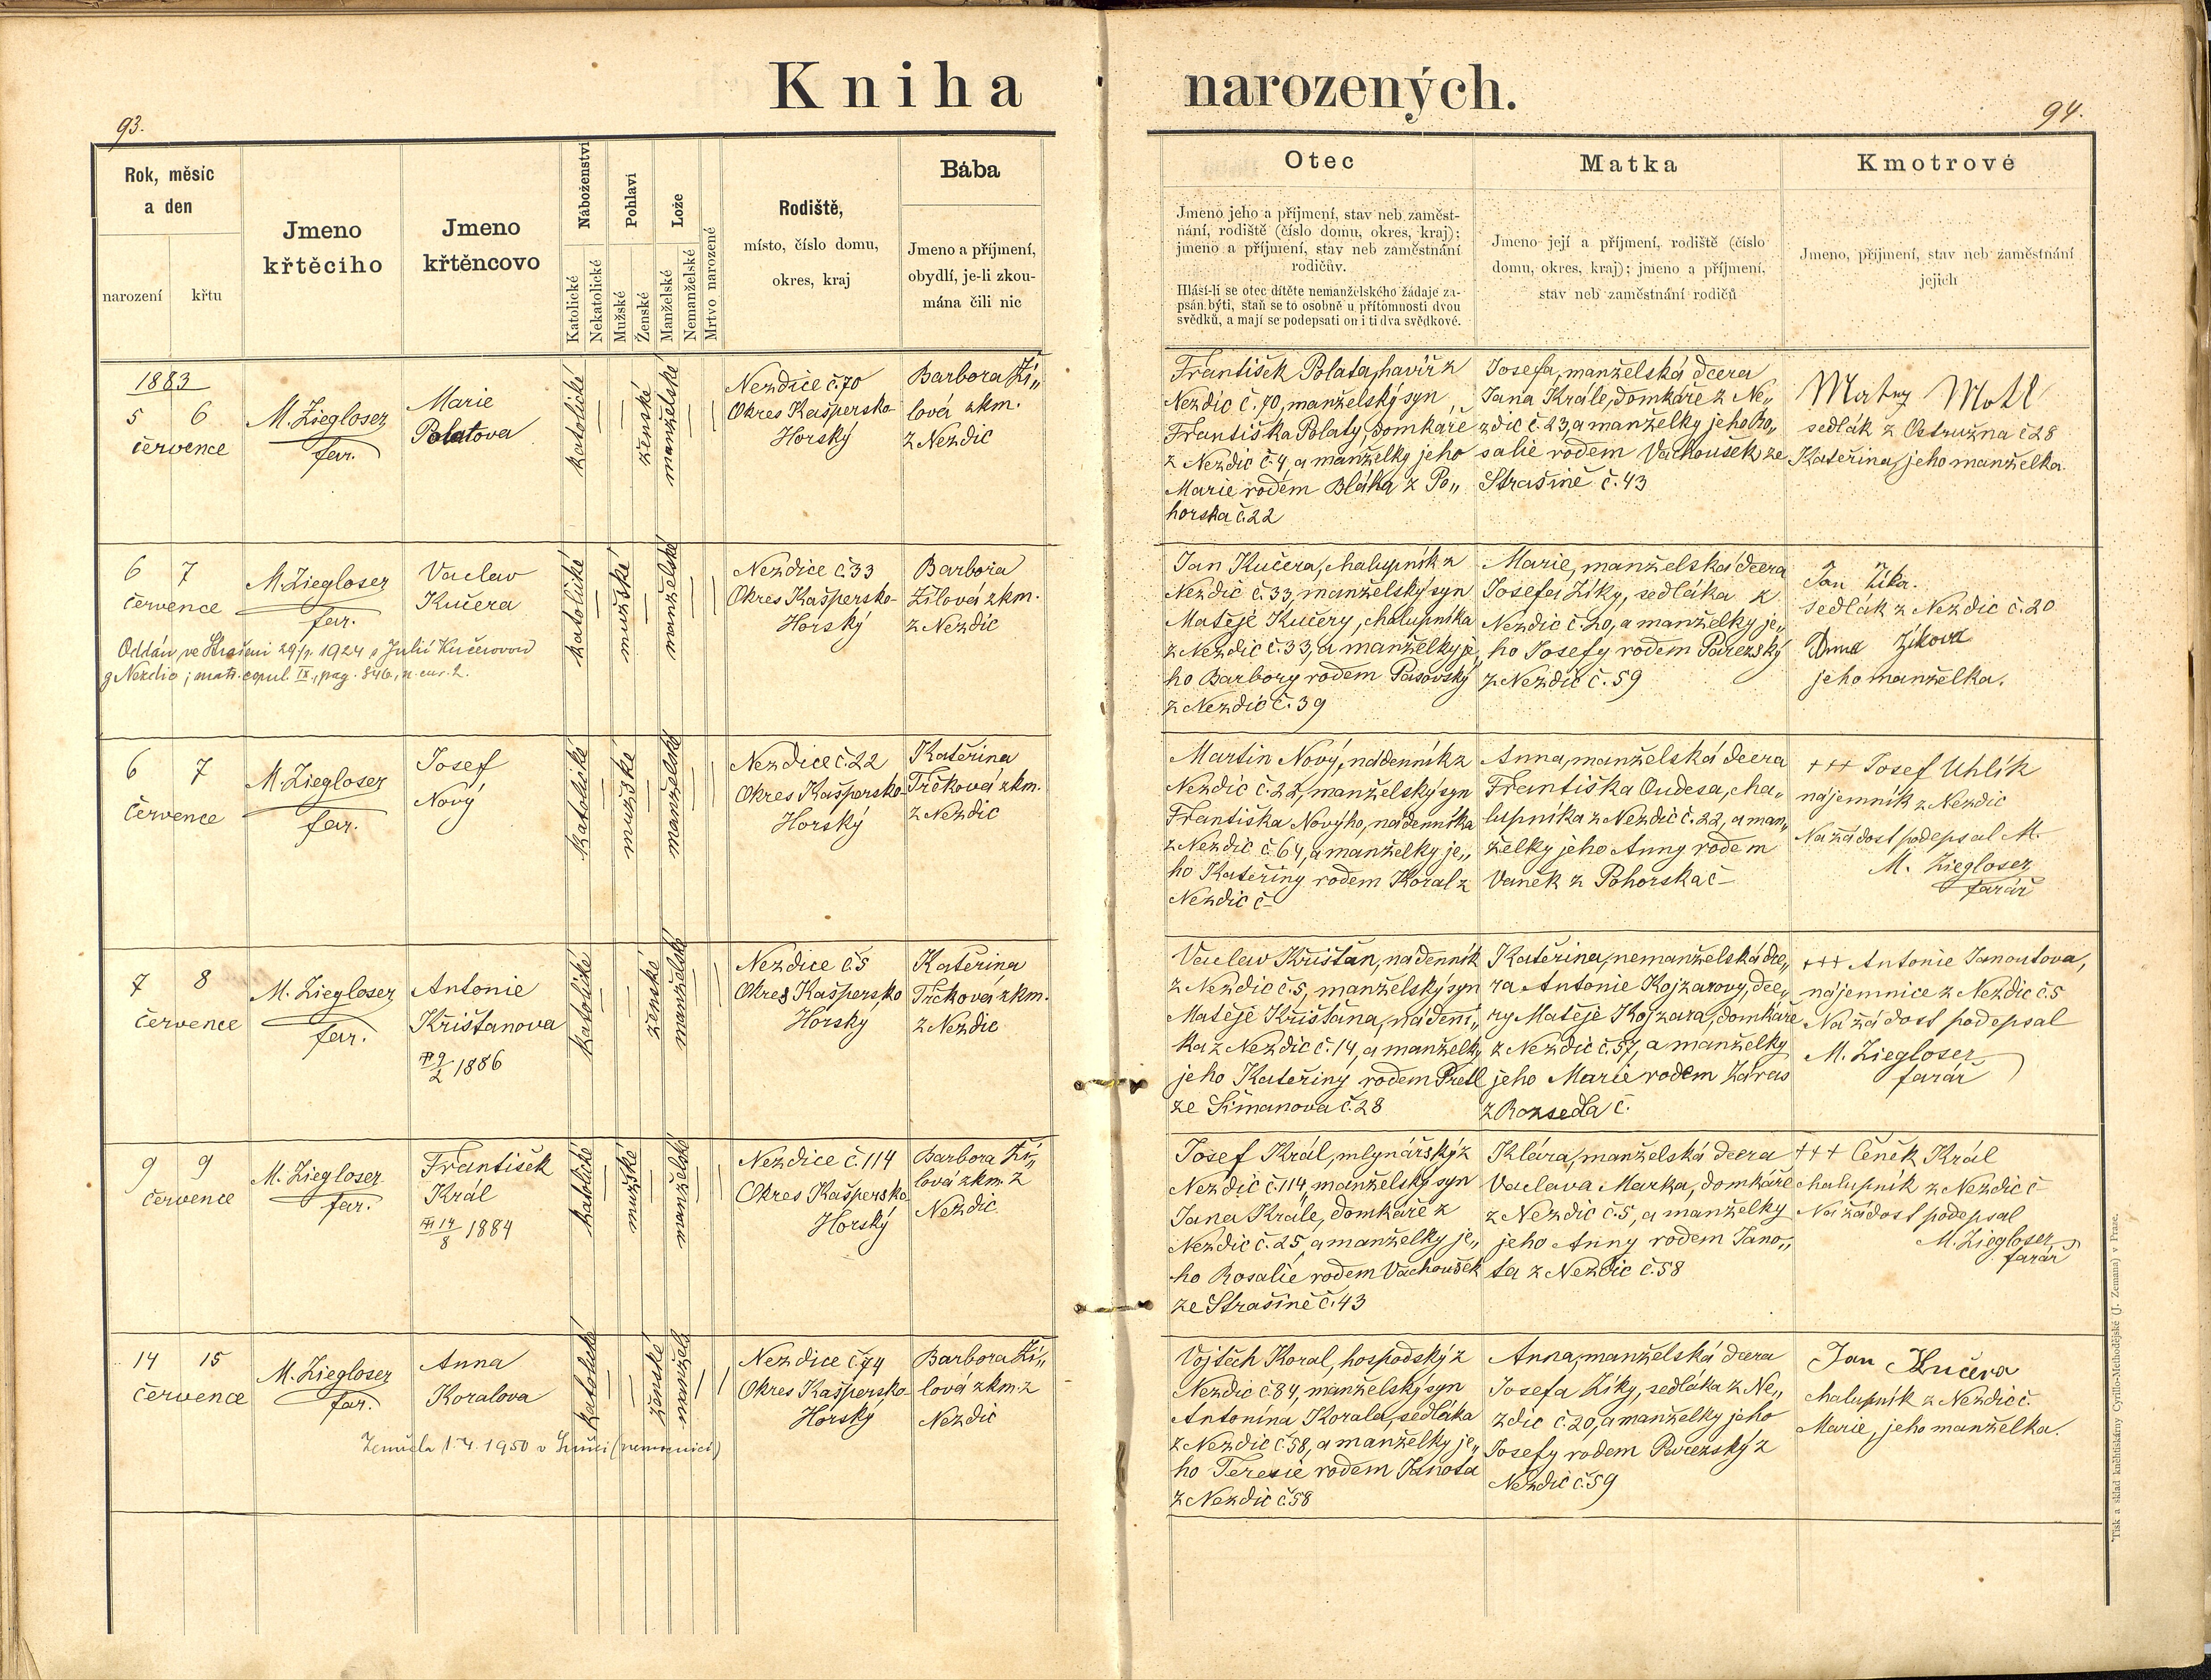 Kniha narozených.
93.
94.
Rok, měsíc a den
narození
křtu
Jmeno křtěciho
Jmeno křtěncovo
Náboženství
Katolické
Nekatolické
Pohlaví
Mužské
Ženské
Lože
Manželské
Nemanželské
Mrtvo narozené
Rodiště,
místo, číslo domu,
okres, kraj
Bába
Jmeno a příjmení,
obydlí, je-li zkou-
mána čili nic
Otec
Jmeno jeho a příjmení, stav neb zaměst-
nání, rodiště (číslo domu, okres, kraj);
jmeno a příjmení, stav neb zaměstnání
rodičův.
Hlásí-li se otec dítěte nemanželského žádaje za-
psán býti, staň se to osobně u přítomnosti dvou
svědků, a mají se podepsati on i ti dva svědkové.
Matka
Jmeno její a příjmení, rodiště (číslo
domu, okres, kraj); jmeno a příjmení,
stav neb zaměstnání rodičů
Kmotrové
Jmeno, příjmení, stav neb zaměstnání
jejich
1883
5 6
července
M. Ziegloser
far.
Marie
Polatova
katolické
ženské
manželské
Nezdice č. 70
Okres Kašpersko
Horský
Barbora Ží„
lová zkm.
z Nezdic
František Polata, havíř z
Nezdic č. 70, manželský syn
Františka Polaty, domkáře
z Nezdic č. 4, a manželky jeho
Marie rodem Bláha z Po„
horska č. 22
Josefa, manželská dcera
Jana Krále, domkáře z Ne„
zdic č. 23, a manželky jeho Ro„
salie rodem Vachoušek ze
Strašině č. 43
Motl
sedlák z Ostružna č 28
Kateřina, jeho manželka.
6 7
července
M. Ziegloser
far.
Vaclav
Kučera
katolické
mužské
manželské
Nezdice č 33
Okres Kašpersko-
Horský
Barbora
Žílová zkm.
z Nezdic
Jan Kučera, chalupník z
Nezdic č. 33, manželský syn
Matěje Kučery, chalupníka
z Nezdic č. 33, a manželky je„
ho Barbory rodem Pasovský
z Nezdic č. 39
Marie, manželská dcera
Josefa Zíky, sedláka z
Nezdic č. 20, a manželky je„
ho Josefy rodem Pařezský
z Nezdic č. 59
Jan Zíka.
sedlák z Nezdic č. 20
Anna Zíkova
jeho manželka.
Oddán ve Strašíni 1924 s Julií Kučerovou
z Nezdic; matr. copul. IX., pag. 846
6 7
července
M. Ziegloser
far.
Josef
Nový
katolické
mužské
manželské
Nezdice č. 22
Okres Kašpersko-
Horský
Kateřina
Trčková zkm.
z Nezdic
Martin Nový, nádenník z
Nezdic č. 22, manželský syn
Františka Nového, nádenníka
z Nezdic č. 64, a manželky je„
ho Kateřiny rodem Koral z
Nezdic č-
Anna, manželská dcera
Františka Oudesa, cha„
lupníka z Nezdic č. 22, a man„
želky jeho Anny rodem
Vaněk z Pohorska č-
+++ Josef Uhlík
nájemník z Nezdic
Na žádost podepsal M.
M. Ziegloser
farář
7 8
července
M. Ziegloser
far.
Antonie
Křišťanova
9/2 1886
katolické
ženské
manželské
Nezdice č. 5
Okres Kašpersko
Horský
Kateřina
Trčková zkm.
z Nezdic
Vaclav Křišťan, nádenník
z Nezdic č. 5, manželský syn
Matěje Křišťana, nádenní„
ka z Nezdic č. 14, a manželky
jeho Kateřiny rodem Pretl
ze Šimanova č. 28
Kateřina, nemanželská dce„
ra Antonie Kojzarovy, dce„
ry Matěje Kojzara, domkáře
z Nezdic č. 57, a manželky
jeho Marie rodem Záras
z Rozsedla č.
+++ Antonie Janoutova,
nájemnice z Nezdic č. 5
Na žádost podepsal
M. Ziegloser
farář
9 9
července
M. Ziegloser
far.
František
Král
14/8 1884
katolické
mužské
manželské
Nezdice č. 114
Okres Kašpersko
Horský
Barbora Ží„
lová zkm. z
Nezdic.
Josef Král, mlynářský z
Nezdic č. 114, manželský syn
Jana Krále, domkáře z
Nezdic č. 25, a manželky je„
ho Rosalie rodem Vachoušek
ze Strašině č. 43
Klára, manželská dcera
Vaclava Marka, domkáře
z Nezdic č. 5, a manželky
jeho Anny rodem Jano„
ta z Nezdic č. 58
+++ Čeněk Král
chalupník z Nezdic č-
Na žádost podepsal
M. Ziegloser
farář
14 15
července
M. Ziegloser
far.
Anna
Koralova
katolické
ženské
manžels
Nezdice č. 74
Okres Kašpersko-
Horský
Barbora Ží„
lová zkm. z
Nezdic
Vojtěch Koral, hospodský z
Nezdic č. 84, manželský syn
Antonína Korala, sedláka
z Nezdic č. 58, a manželky je„
ho Teresie rodem Janota
z Nezdic č. 58
Anna, manželská dcera
Josefa Zíky, sedláka z Ne„
zdic č. 20, a manželky jeho
Josefy rodem Pařezský z
Nezdic č. 59
Jan Kučera
chalupník z Nezdic č.
Marie, jeho manželka.
Zemřela 1.4. 1950 v Sušici (nemocnici)
Tisk a sklad knihtiskárny Cyrillo-Methodějské (J. Zeman) v Praze.